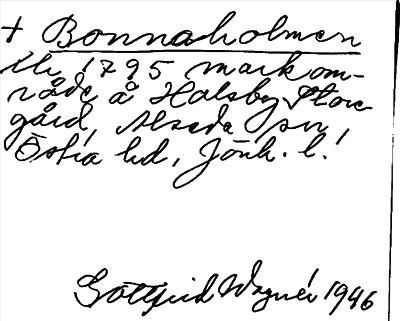 + Bonnaholmen
1795 markom-
råde å Holsby Store
gård, Alseda sn,
Östra hd, Jönk. l.
Gottfrid Wagnér 1946